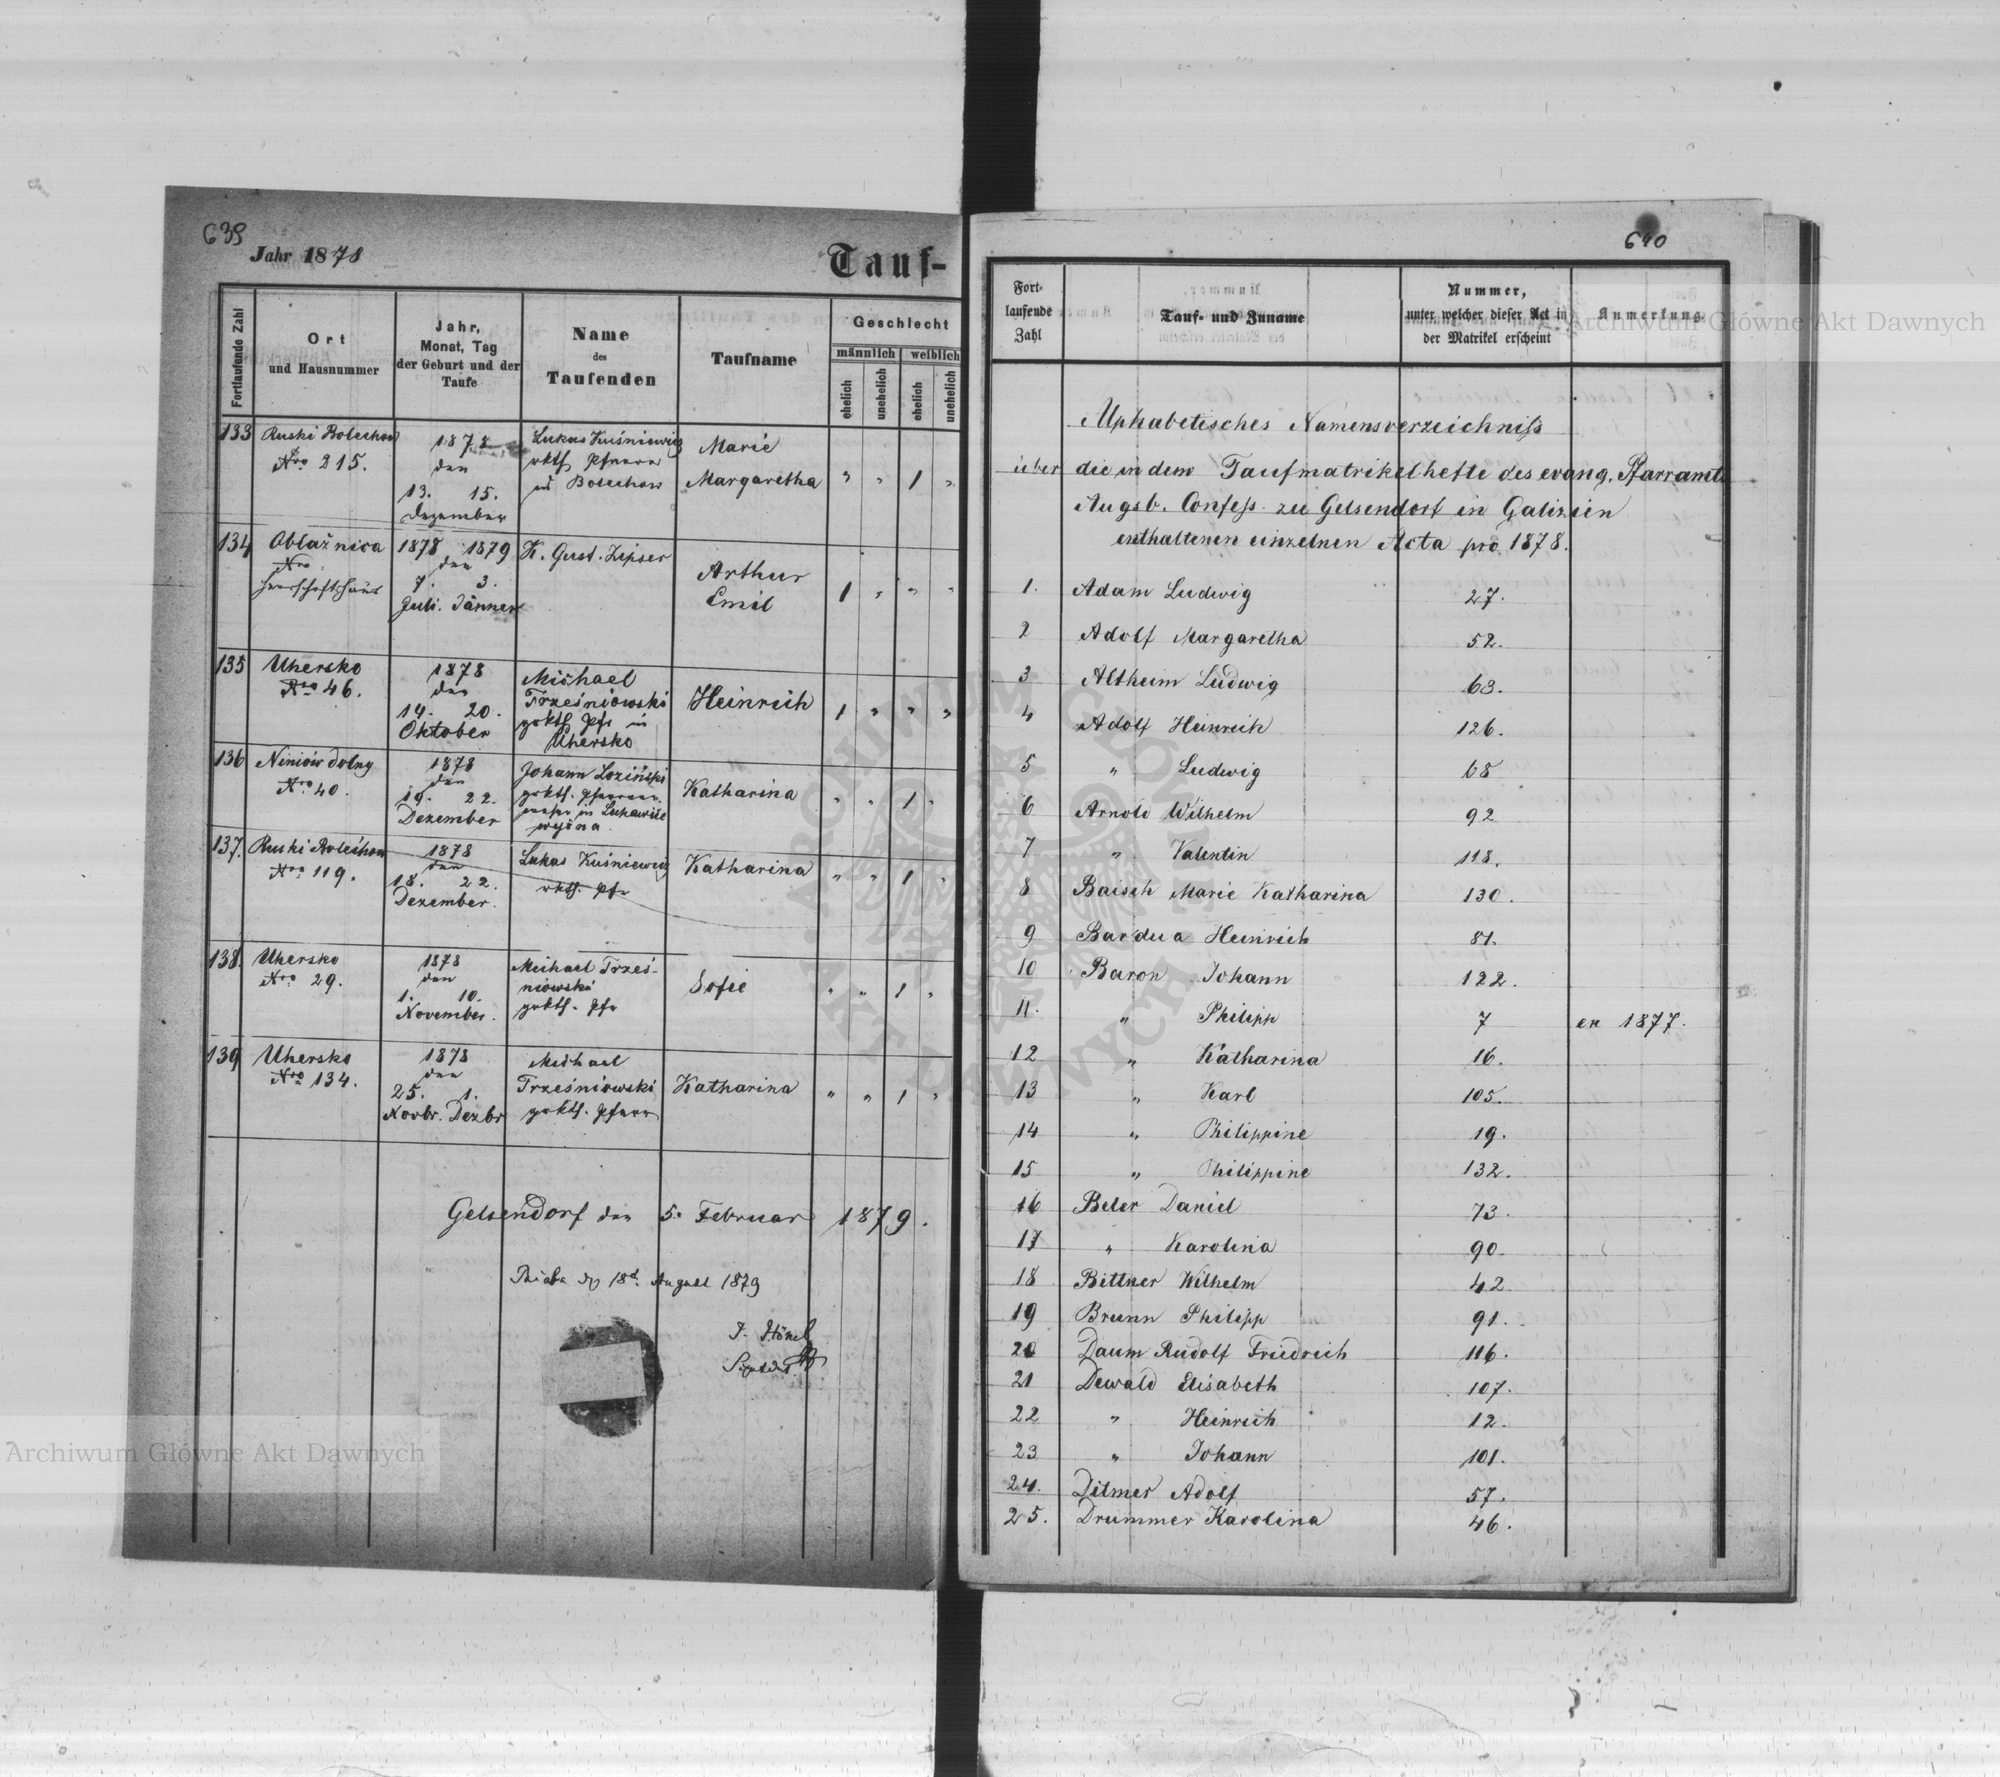 639
Jahr 1878
Tauf-
Fortlaufende Zahl
Ort
und Hausnummer
Jahr,
Monat, Tag
der Geburt und der
Taufe
Name
des
Taufenden
Taufname
Geschlecht
männlich weiblich
ehelich unehelich ehelich unehelich
133 Ruski Bolechow
Nro 215.
1878
den
13. 15.
Dezember
Lukas Kuśniewicz
rkth. Pfarrer
in Bolechow
Marie
Margaretha
" " 1 "
134 Oblaźnica
Nro
Herrschaftshaus
1878 1879
den
7. 3.
Juli. Jänner
K. Gust. Zipser
Arthur
Emil
1 " " "
135 Uhersko
Nro 46.
1878
den
14. 20.
Oktober
Michael
Trześniowski
gokth. Pfr in
Uhersko
Heinrich
1 " " "
136 Niniów dolny
Nro 40.
1878
den
19. 22.
Dezember
Johann Loziński
gokth.
in Lukawice
wyśna
Katharina
" " 1 "
137. Ruski Bolechow
Nro 119.
1878
den
18. 22.
Dezember.
Lukas Kuśniewicz
rkth. Pfr
Katharina
" " 1 "
138. Uhersko
Nro 29.
1878
den
1. 10.
November.
Michael Trześ-
niowski
gokth. Pfr
Sofie
" " 1 "
139 Uhersko
Nro 134.
1878
den
25. 1.
Novbr. Dezbr
Michael
Trześniowski
gokth. Pfarr
Katharina
" " 1 "
Gelsendorf den 5. Februar 1879.
Biala 18t. August 1879
J. Hönel
640
Fort-
laufende
Zahl
Tauf- und Zuname
Nummer,
unter welcher dieser Act in
der Matrikel erscheint
Anmerkung.
Alphabetisches Namensverzeichniß
über die in dem Taufmatrikelhefte des evang. Pfarramts
Augsb. Confess. zu Gelsendorf in Galizien
enthaltenen einzelnen Acta pro 1878.
1. Adam Ludwig 27.
2 Adolf Margaretha 52.
3 Altheim Ludwig 63.
4 Adolf Heinrich 126.
5 " Ludwig 68
6 Arnold Wilhelm 92
7 " Valentin 118.
8 Baisch Marie Katharina 130.
9 Bardua Heinrich 81.
10 Baron Johann 122.
11. " Philipp 7 ex 1877.
12 " Katharina 16.
13 " Karl 105.
14 " Philippine 19.
15 " Philippine 132.
16 Beler Daniel 73.
17 " Karolina 90.
18 Bittner Wilhelm 42
19 Brunn Philipp 91.
20 Daum Rudolf Friedrich 116.
21 Dewald Elisabeth 107.
22 " Heinrich 12.
23 " Johann 101.
24. Ditmer Adolf 57.
25. Drummer Karolina 46.
Archiwum Główne Akt Dawnych
Archiwum Główne Akt Dawnych
ARCHIWUM GŁÓWNE AKT DAWNYCH